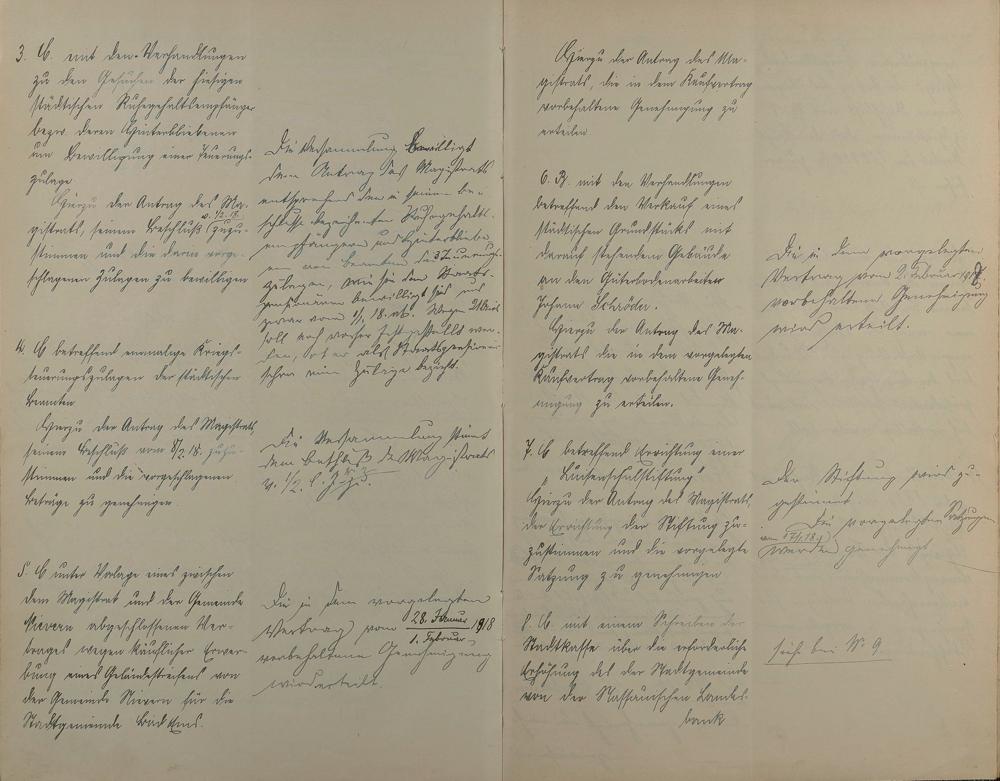 3. C. mit den Verhandlungen
zu den Gesuchen der hiesigen
städtischen Ruhegehaltsempfänger
bezw. deren Hinterbliebenen
um Bewilligung einer Teuerungs-
zulage.
Hierzu der Antrag des Ma-
gistrats, seinem Beschluß v. 1/2.18. zuzu-
stimmen und die darin vorge-
schlagenen Zulagen zu bewilligen
Die Versammlung bewilligt
dem Antrag des Magistrats
entsprechend den in seinem Be-
schlusse bezeichneten Ruhegehalts-
empfängern und Hinterbliebe-
nen von Beamten die Teuerungs-
zulagen, wie sie den Staats-
pensionären bewilligt sind und
zwar vom 1/1. 18. ab. Wegen
soll noch vorher festgestellt wer-
den, ob er als Staatspensionär
schon eine Zulage bezieht.
4. C betreffend einmalige Kriegs-
teuerungszulagen der städtischen
Beamten
Hierzu der Antrag des Magistrats,
seinem Beschluß vom 8/2 18. zuzu-
stimmen und die vorgeschlagenen
Beträge zu genehmigen
Die Versammlung stimmt
dem Beschluß des Magistrats
v. 1/2. l. J. zu.
5. C unter Vorlage eines zwischen
dem Magistrat und der Gemeinde
Nievern abgeschlossenen Ver-
trages wegen käuflicher Erwer-
bung eines Geländestreifens von
der Gemeinde Nievern für die
Stadtgemeinde Bad Ems.
Die in dem vorgelegten
Vertrag vom 28. Januar 1918
1. Februar
vorbehaltene Genehmigung
wird erteilt.
Hierzu der Antrag des Ma-
gistrats, die in dem Kaufvertrag
vorbehaltene Genehmigung zu
erteilen
6. B. mit den Verhandlungen
betreffend den Verkauf eines
städtischen Grundstücks mit
darauf stehendem Gebäude
an den Güterbodenarbeiter
Johann Schröder.
Hierzu der Antrag des Ma-
gistrats die in dem vorgelegten
Kaufvertrag vorbehaltene Geneh-
migung zu erteilen.
Die in dem vorgelegten
Vertrag vom 2. Februar 1918
vorbehaltene Genehmigung
wird erteilt.
7. C betreffend Errichtung einer
Hierzu der Antrag des Magistrats,
der Errichtung der Stiftung zu-
zustimmen und die vorgelegte
Satzung zu genehmigen
Der Stiftung wird zu-
gestimmt
Die vorgelegten Satzungen
werden genehmigt
8. C. mit einem Schreiben der
Stadtkasse über die erforderliche
Erhöhung des der Stadtgemeinde
von der Nassauischen Landes-
bank
sieh bei No 9